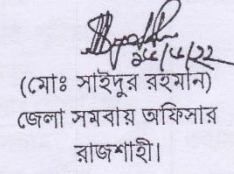 ২৫/৮/২২
(মোঃ সাইদুর রহমান)
জেলা সমবায় অফিসার
রাজশাহী।